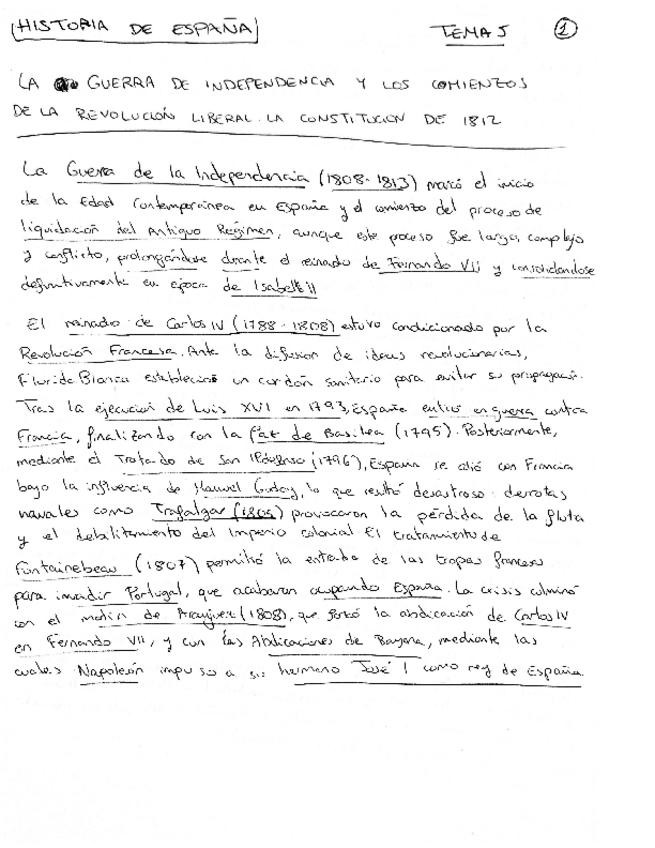 HISTORIA DE ESPAÑA TEMA 5 1
LA GUERRA DE INDEPENDENCIA Y LOS COMIENZOS
DE LA REVOLUCIÓN LIBERAL. LA CONSTITUCION DE 1812
La Guerra de la Independencia (1808-1813) marcó el inicio
de la Edad Contemporánea en España y el comienzo del proceso de
liquidación del Antiguo Régimen, aunque este proceso fue largo, complejo
y conflicto, prolongándose durante el reinado de Fernando VII y consolidandose
definitivamente en época de Isabel II
El reinado de Carlos IV (1788-1808) estuvo condicionado por la
Revolución Francesa. Ante la difusión de ideas revolucionarias,
Florida Blanca estableció un cordón sanitario para evitar su propagación.
Tras la ejecución de Luis XVI en 1793, España entró en guerra contra
Francia, finalizando con la Paz de Basilea (1795). Posteriormente,
mediante el Tratado de San Ildefonso (1796), España se alió con Francia
bajo la influencia de Manuel Godoy, lo que resultó desastroso: derrotas
navales como Trafalgar (1805) provocaron la pérdida de la flota
y el debilitamiento del imperio colonial. El tratamiento de
Fontainebeau (1807) permitió la entrada de las tropas francesas
para invadir Portugal, que acabaron ocupando España. La crisis culminó
con el motín de Aranjuez (1808), que forzó la abdicación de Carlos IV
en Fernando VII, y con las Abdicaciones de Bayona, mediante las
cuales Napoleón impuso a su hermano José I como rey de España.